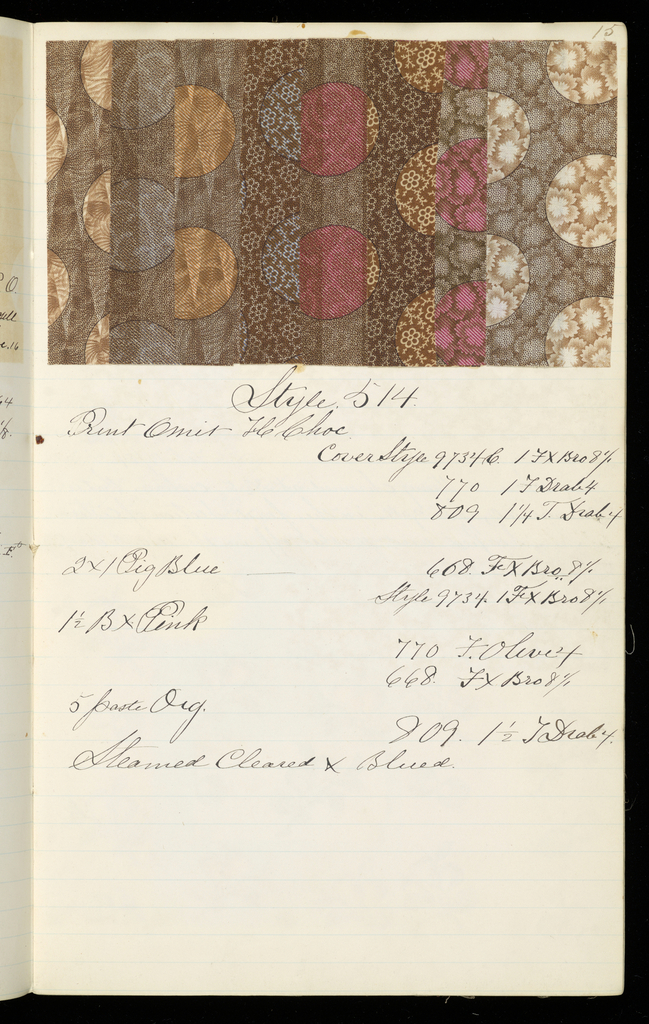 15
Style. 514.
Print Omit Choc
Cover Style 9734 C. 1 FX Bro 8/.
770 1 F Drab 4
809 1 1/4 F. Drab 4
2x1 Pig Blue 668. FX Bro. 8/.
Style 9734. 1 FX Bro 8/.
1 1/2 B X Pink
770 F. Olive 4
668. FX Bro 8/.
5 paste Org.
809. 1 1/2 F Drab 4.
Steamed Cleared X Blued.